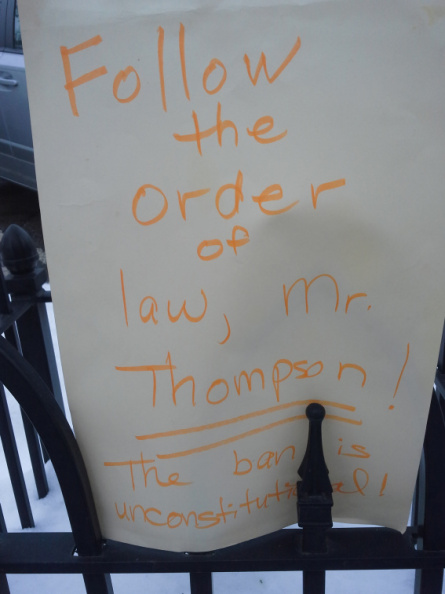 Follow
the
order
of
law, Mr.
Thompson!
The ban is
unconstitutional!